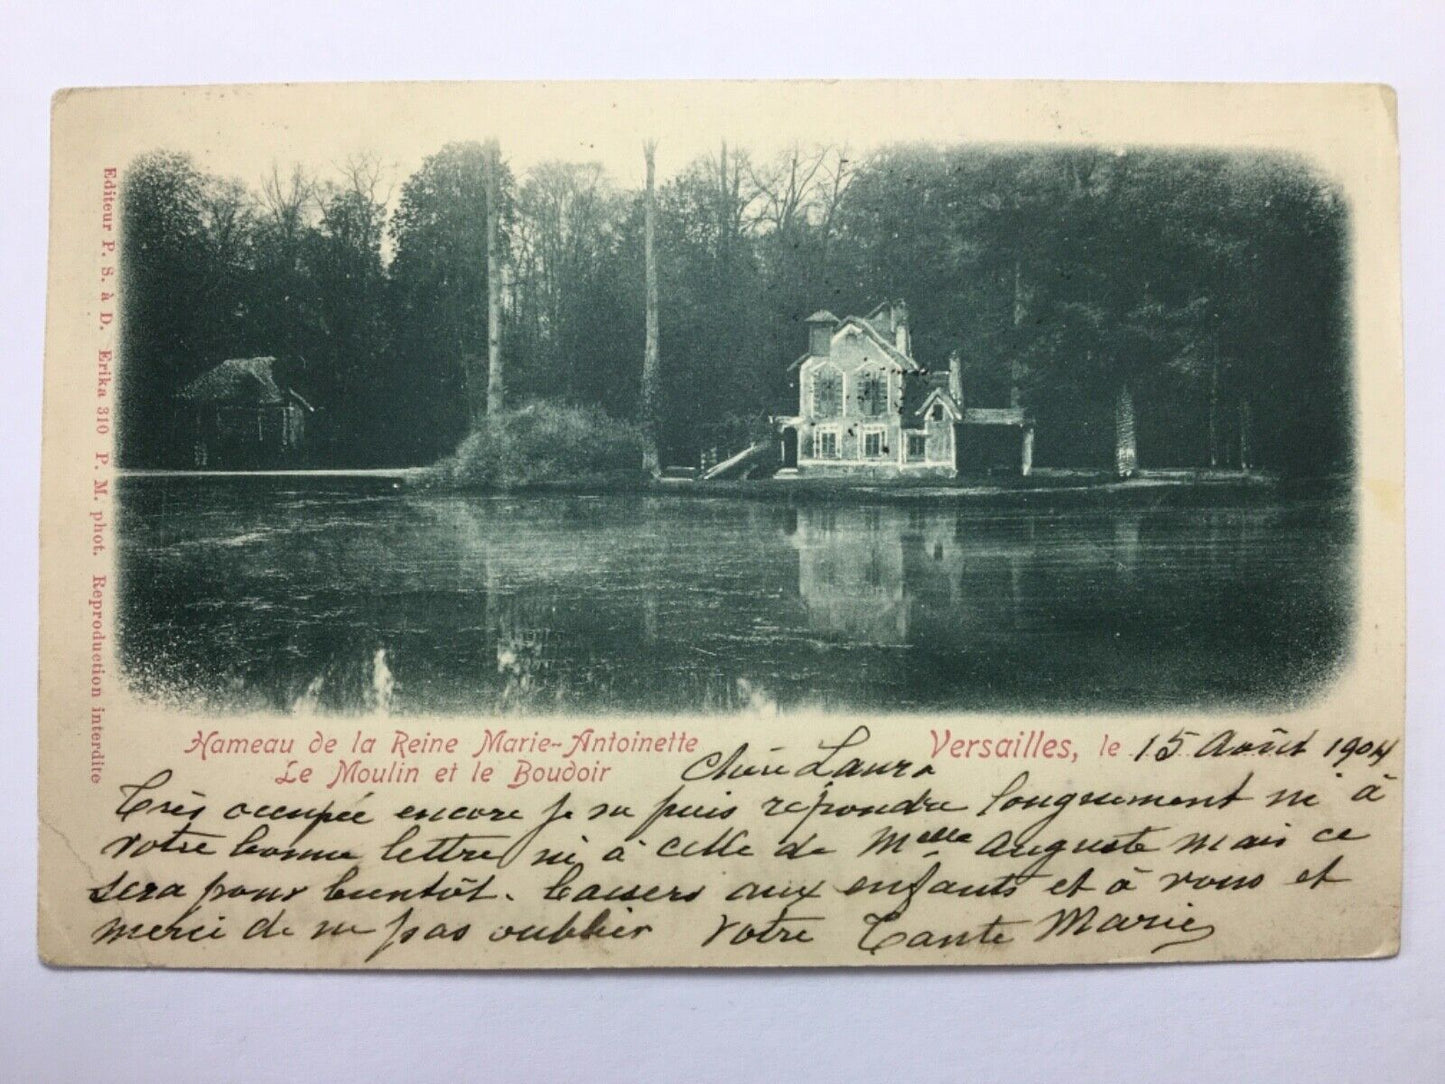 Editeur P. S. à D. Erika 310 P. M. phot. Reproduction interdite
Hameau de la Reine Marie-Antoinette
Le Moulin et le Boudoir
Versailles, le 15 Août 1904
Chère Laura
Très occupée encore je ne puis répondre longuement ni à
votre bonne lettre ni à celle de Melle Auguste mais ce
sera pour bientôt. baisers aux enfants et à vous et
merci de ne pas oublier votre Tante Marie